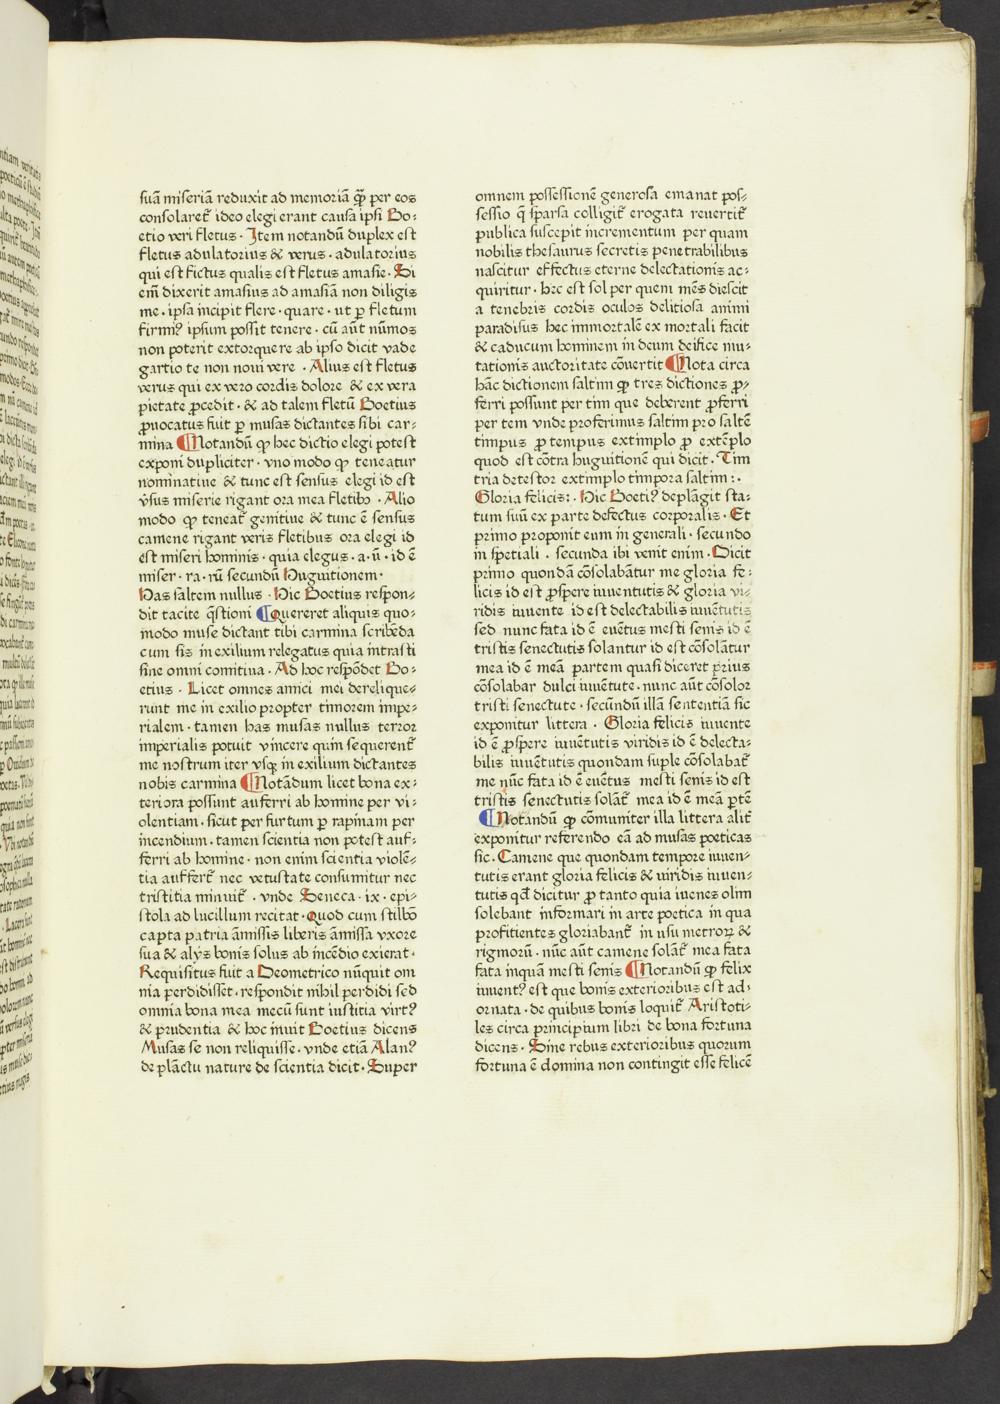 suā miseriā reduxit ad memoriā qꝫ per eos
consolareť ideo elegi erant causa ipsi Bo⸗
etio veri fletus · Item notandū duplex est
fletus adulatorius & verus · adulatorius
qui est fictus qualis est fletus amasie · Si
em̄ dixerit amasius ad amasiā non diligis
me · ipsa incipit flere · quare · ut ꝑ fletum
firmiꝰ ipsum possit tenere · cū aūt nūmos
non poterit extorquere ab ipso dicit vade
gartio te non noui vere · Alius est fletus
verus qui ex vero cordis dolore & ex vera
pietate ꝓcedit · & ad talem fletū Boetius
ꝓuocatus fuit ꝑ musas dictantes sibi car⸗
mina ¶Notandū ꝙ hec dictio elegi potest
exponi dupliciter · vno modo ꝙ teneatur
nominatiue & tunc est sensus elegi id est
v̓sus miserie rigant ora mea fletibꝫ · Alio
modo ꝙ teneať genitiue & tunc ē sensus
camene rigant veris fletibus ora elegi id
est miseri hominis · quia elegus · a · ū · id ē
miser · ra · rū secundū Huguitionem ·
Has saltem nullus · Hic Boetius respon⸗
dit tacite q̄stioni ¶Quereret aliquis quo⸗
modo muse dictant tibi carmina scribēda
cum sis in exilium relegatus quia intrasti
sine omni comitiua · Ad hoc respōdet Bo⸗
etius · Licet omnes amici mei derelique⸗
runt me in exilio propter timorem impe⸗
rialem · tamen has musas nullus terror
imperialis potuit vincere quin sequerenť
me nostrum iter vsqꝫ in exilium dictantes
nobis carmina ¶Notādum licet bona ex⸗
teriora possunt auferri ab homine per vi⸗
olentiam · sicut per furtum ꝑ rapinam per
incendium · tamen scientia non potest auf⸗
ferri ab homine · non enim scientia violē⸗
tia aufferť nec vetustate consumitur nec
tristitia minuiť · vnde Seneca · ix · epi⸗
stola ad lucillum recitat · Quod cum stilbō
capta patria āmissis liberis āmissa vxore
sua & alijs bonis solus ab incēdio exierat ·
Requisitus fuit a Deometrico nūquit om
nia perdidisset · respondit nihil perdidi sed
omnia bona mea mecū sunt iustitia virtꝰ
& prudentia & hoc inuit Boetius dicens
Musas se non reliquisse · vnde etiā Alanꝰ
de plāctu nature de scientia dicit · Super
omnem possessionē generosa emanat pos⸗
sessio q̄ sparsa colligiť erogata reuertiť
publica suscepit incrementum per quam
nobilis thesaurus secretis penetrabilibus
nascitur effectus eterne delectationis ac⸗
quiritur · hec est sol per quem mēs diescit
a tenebris cordis oculos delitiosa animi
paradisus hec immortalē ex mortali facit
& caducum hominem in deum deifice mu⸗
tationis auctoritate cōuertit ¶Nota circa
hāc dictionem saltim ꝙ tres dictiones ꝓ⸗
ferri possunt per tim que deberent ꝓferri
per tem vnde proferimus saltim pro saltē
timpus ꝓ tempus extimplo ꝓ extēplo
quod est cōtra huguitionē qui dicit · Tim
tria detestor extimplo timpora saltim : ·
Gloria felicis : · Hic Boetiꝰ deplāgit sta⸗
tum suū ex parte defectus corporalis · Et
primo proponit eum in generali · secundo
in spetiali · secunda ibi venit enim · Dicit
primo quondā cōsolabātur me gloria fe⸗
licis id est ꝓspere iuuentutis & gloria vi⸗
ridis iuuente id est delectabilis iuuētutis
sed nunc fata id ē euētus mesti senis id ē
tristis senectutis solantur id est cōsolātur
mea id ē meā partem quasi diceret prius
cōsolabar dulci iuuētute · nunc aūt cōsolor
tristi senectute · secūndū illā sententiā sic
exponitur littera · Gloria felicis iuuente
id ē ꝓspere iuuētutis viridis id ē delecta⸗
bilis iuuētutis quondam suple cōsolabať
me nūc fata id ē euētus mesti senis id est
tristis senectutis solāť mea id ē meā ꝑtē
¶Notandū ꝙ cōmuniter illa littera aliť
exponitur referendo eā ad musas poeticas
sic · Camene que quondam tempore iuuen⸗
tutis erant gloria felicis & uiridis iuuen⸗
tutis qd̄ dicitur ꝓ tanto quia iuenes olim
solebant informari in arte poetica in qua
profitientes gloriabanť in usu metrorꝝ &
rigmorū · nūc aūt camene solāť mea fata
fata inquam mesti senis ¶Notandū ꝙ felix
iuuentꝰ est que bonis exterioribus est ad⸗
ornata · de quibus bonis loquiť Aristoti⸗
les circa principium libri de bona fortuna
dicens · Sine rebus exterioribus quorum
fortuna ē domina non contingit esse felicē